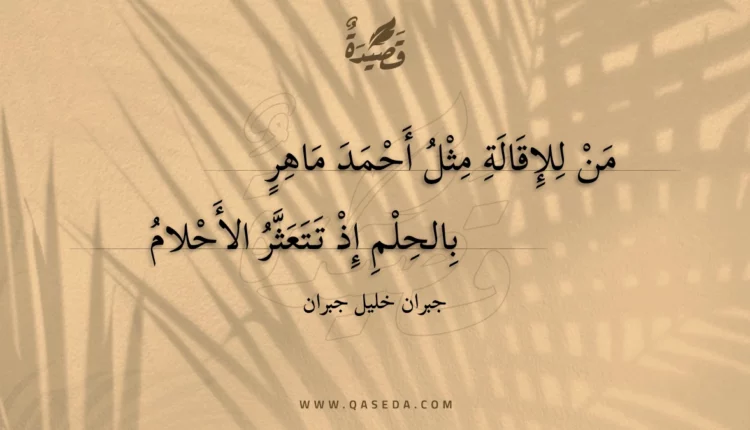 قَصِيْدَةٌ
مَنْ لِلإِقَالَةِ مِثْلُ أَحْمَدَ مَاهِرٍ
بِالحِلْمِ إِذْ تَتَعَثَّرُ الأَحْلامُ
جبران خليل جبران
WWW.QASEDA.COM